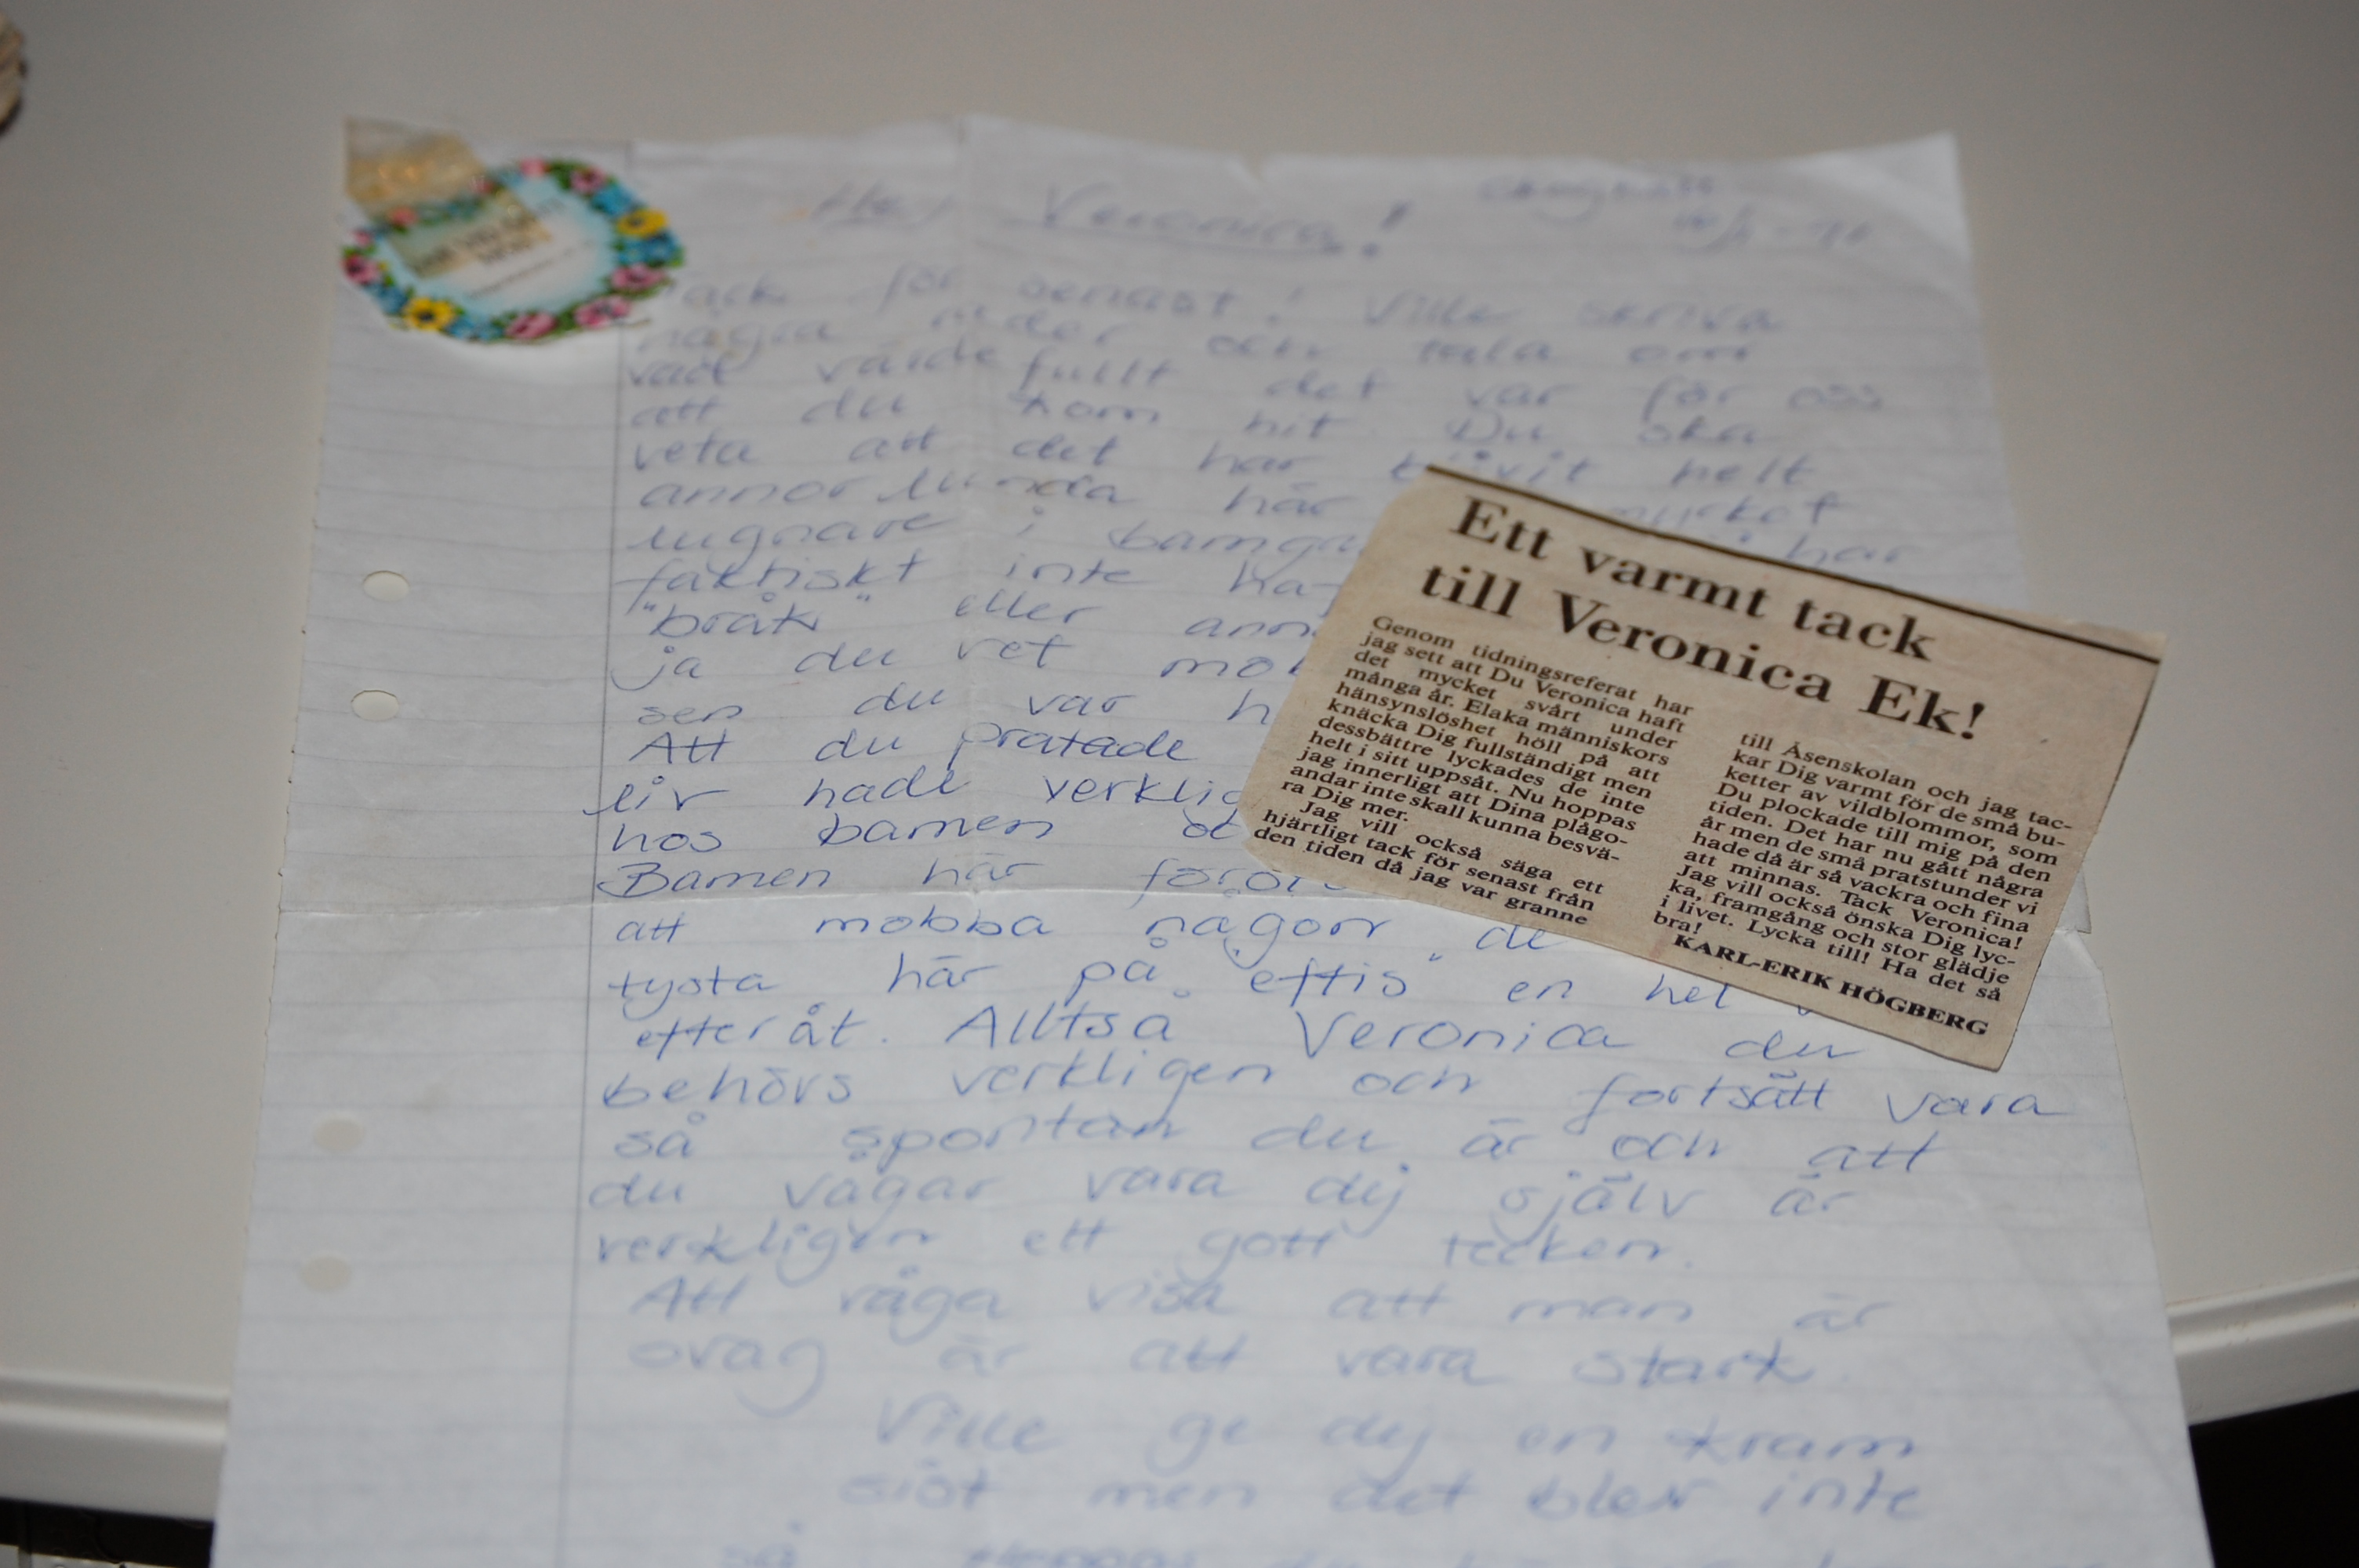 Hej Veronica!
Tack för senast! Ville skriva
några rader och tala om
vad värdefullt det var för oss
att du kom hit. Du ska
veta att det har blivit helt
annorlunda här mycket
lugnare i barngr har
faktiskt inte ha
"bråk" eller ann
ja du vet mob
sen du var h
Att du pratade
liv hade verklig
hos barnen oc
Barnen här
att mobba någon de
tysta här på "eftis" en hel
efteråt. Alltså Veronica du
behövs verkligen och fortsätt vara
så spontan du är och att
du vågar vara dig själv är
verkligen ett gott tecken.
Att våga visa att man är
svag är att vara stark.
Ville ge dig en kram
sist men det blev inte
så
Ett varmt tack
till Veronica Ek!
Genom tidningsreferat har
jag sett att Du Veronica haft
det mycket svårt under
många år. Elaka människors
hänsynslöshet höll på att
knäcka Dig fullständigt men
dessbättre lyckades de inte
helt i sitt uppsåt. Nu hoppas
jag innerligt att Dina plågo-
andar inte skall kunna besvä-
ra Dig mer.
Jag vill också säga ett
hjärtligt tack för senast från
den tiden då jag var granne
till Åsenskolan och jag tac-
kar Dig varmt för de små bu-
ketter av vildblommor, som
Du plockade till mig på den
tiden. Det har nu gått några
år men de små pratstunder vi
hade då är så vackra och fina
att minnas. Tack Veronica!
Jag vill också önska Dig lyc-
ka, framgång och stor glädje
i livet. Lycka till! Ha det så
bra!
KARL-ERIK HÖGBERG